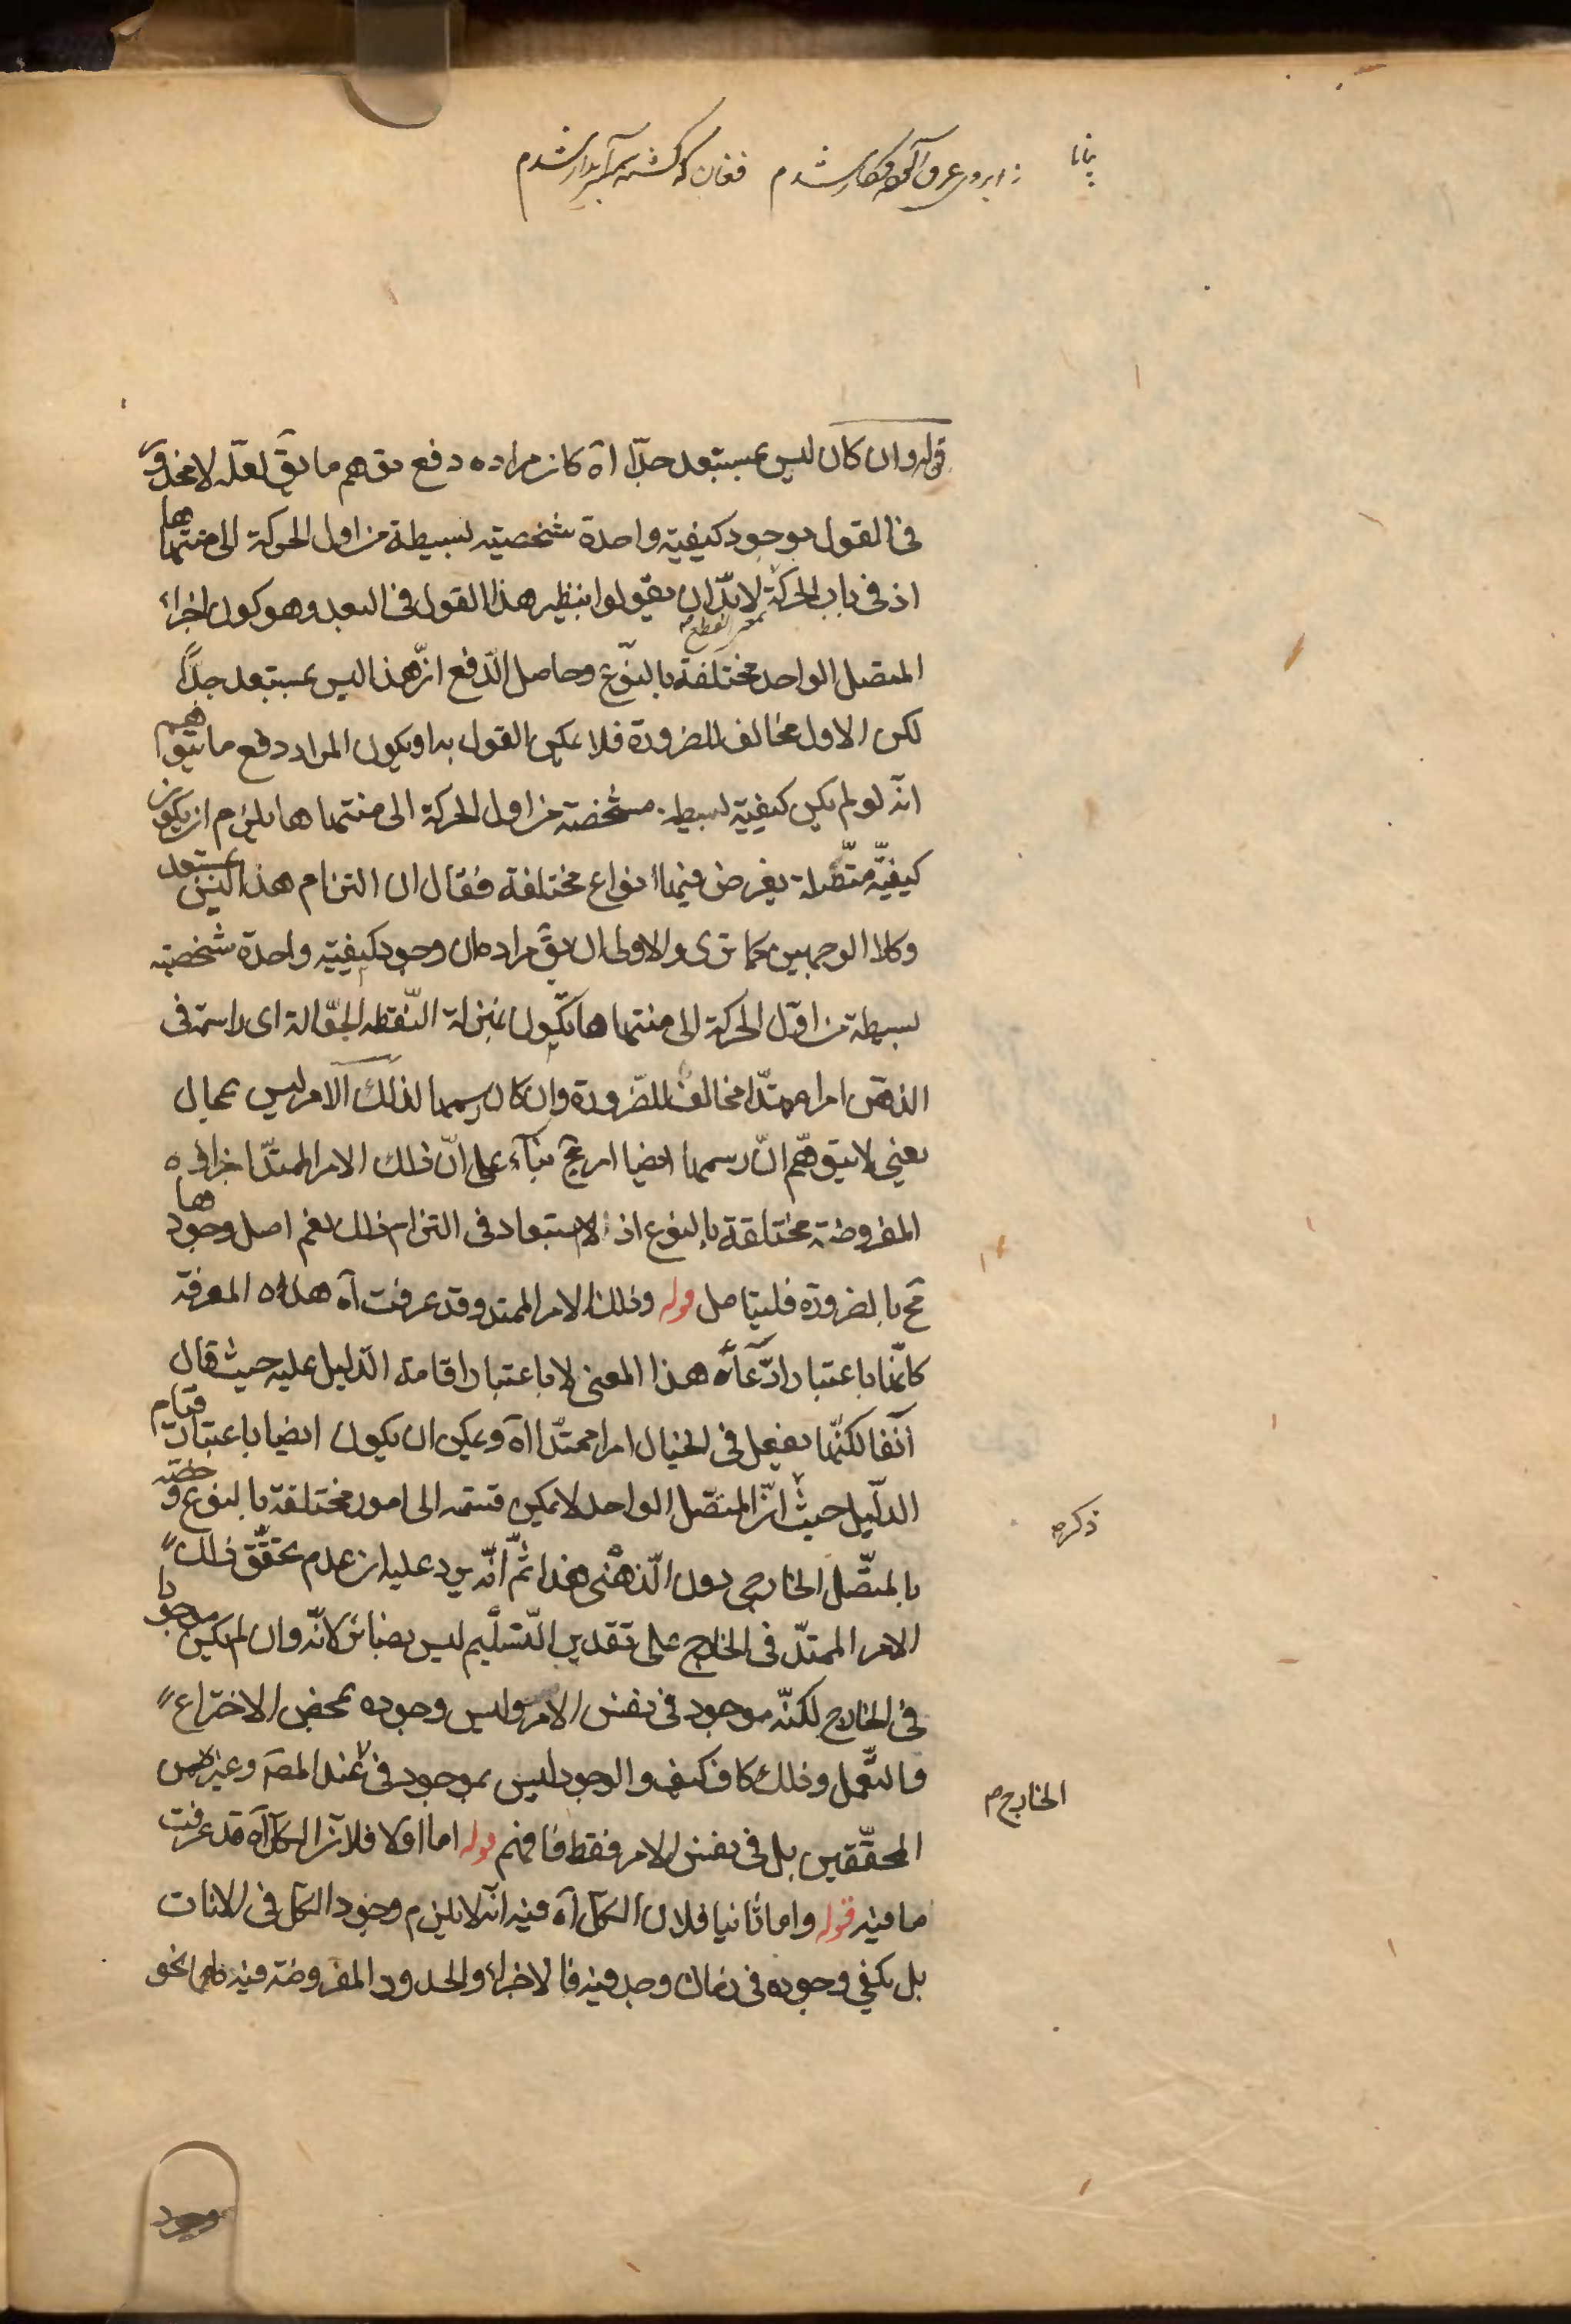 پانا
ز ابروی عرق شدم فغان که کشته شدم
قوله وان كان ليس بمستبعد جدّا اه كان مراده دفع توهم ما يقَ لعلّه لا محذور
فى القول بوجود كيفيّة واحدة شخصيّة بسيطة من اول الحركة الى منتهاها
اذ فى باب الحركة بمعنى القطع لا بدّ ان يقولوا بنظير هذا القول فى البعد وهو كون اجزاء
المتصل الواحد مختلفة بالنّوع وحاصل الدّفع انّ هذا ليس بمستبعد جدًّا
لكن الاول مخالف للضرورة فلا يمكن القول به او يكون المراد دفع ما يتوهم
انّه لو لم يكن كيفيّة بسيطة مشخصة من اول الحركة الى منتهاها يلزم ان يكون
كيفيّة متّصلة يفرض فيها انواع مختلفة فقال ان التزام هذا ليس بمستبعد
وكلا الوجهين كما ترى والاولى ان يقَ مراده ان وجود كيفيّة واحدة شخصيّة
بسيطة من اوّل الحركة الى منتهاها تكون بمنزلة النّقطة الجوّالة اى راسمة فى
الذهن امرا ممتدّا مخالف للضّرورة وان كان رسمها لذلك الامر ليس بمحال
يعنى لا يتوهّم انّ رسمها ايضا امر مح بناءً على انّ ذلك الامر الممتدّ اجزاؤه
المفروضة مختلفة بالنوع اذ لا استبعاد فى التزام ذلك نعم اصل وجودها
مح بالضرورة فليتامل قوله وذلك الامر الممتد وقد عرفت اه هذه المعرفة
كانّها باعتبار ادّعائه هذا المعنى لا باعتبار اقامة الدّليل عليه حيث قال
آنفا لكنّها تفعل فى الخيال امرا ممتدّا اه ويمكن ان يكون ايضا باعتبار قيام
الدّليل حيث ذكره انّ المتصّل الواحد لا يمكن قسمته الى امور مختلفة بالنوع و خصّه
بالمتّصل الخارجى دون الذّهنى هذا ثمّ انّه يرد عليه ان عدم تحقّق ذلك
الامر الممتدّ فى الخارج على تقدير التّسليم ليس بضائر لانّه وان لم يكن موجودا
فى الخارج لكنّه موجود فى نفس الامر وليس وجوده بمحض الاختراع
والتعمّل وذلك كاف كيف والوجود ليس بموجود فى الخارج عند المصَ وغيره من
المحقّقين بل فى نفس الامر فقط فافهم قوله اما اولا فلانّ الكل اه قد عرفت
ما فيه قوله واما ثانيا فلان الكلّ اه فيه انّه لا يلزم وجود الكل فى الانات
بل يكفى وجوده فى زمان وجد فيه فالاجزاء والحدود المفروضة فيه لها نحو
وجود